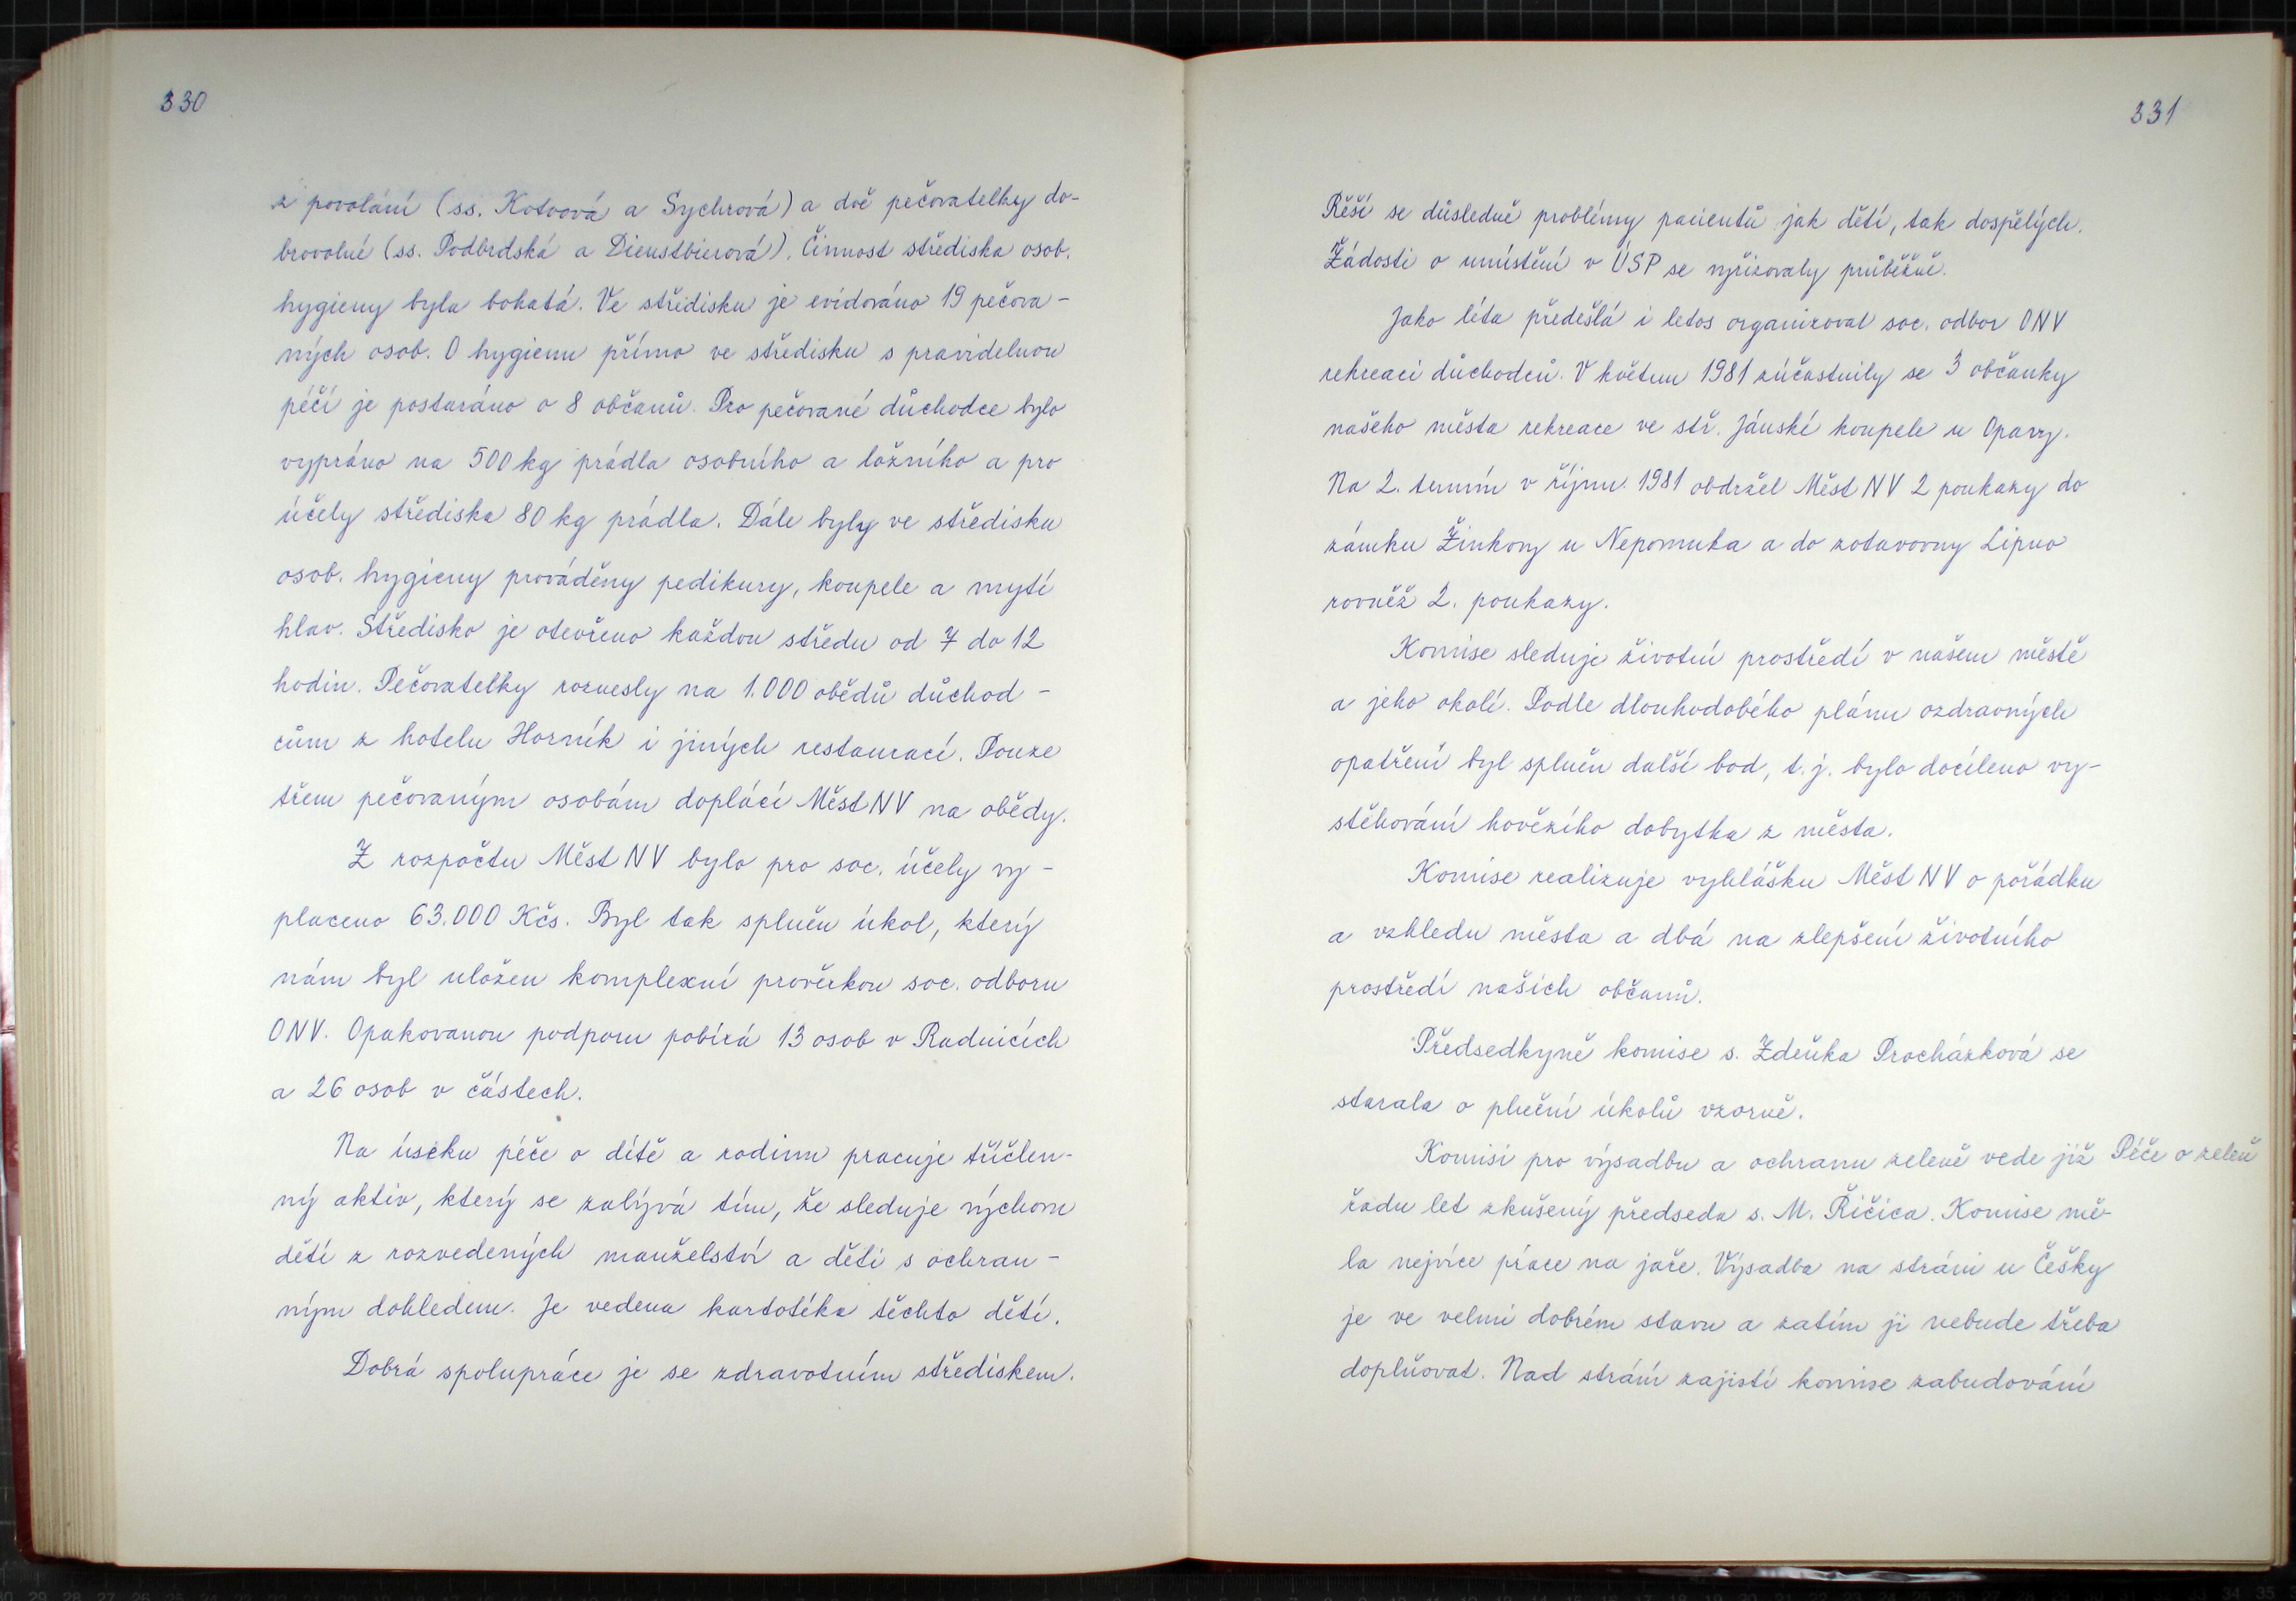 330
z povolání (ss. Kotvová a Sychrová) a dvě pečovatelky do-
brovolné (ss. Podbrdská a Dienstbierová). Činnost střediska osob.
hygieny byla bohatá. Ve středisku je evidováno 19 pečova-
ných osob. O hygienu přímo ve středisku s pravidelnou
péčí je postaráno o 8 občanů. Pro pečované důchodce bylo
vypráno na 500 kg prádla osobního a ložního a pro
účely střediska 80 kg prádla. Dále byly ve středisku
osob. hygieny prováděny pedikury, koupele a mytí
hlav. Středisko je otevřeno každou středu od 7 do 12
hodin. Pečovatelky roznesly na 1.000 obědů důchod-
cům z hotelu Horník i jiných restaurací. Pouze
třem pečovaným osobám doplácí Měst NV na obědy.
Z rozpočtu Měst NV bylo pro soc. účely vy-
placeno 63.000 Kčs. Byl tak splněn úkol, který
nám byl uložen komplexní prověrkou soc. odboru
ONV. Opakovanou podporu pobírá 13 osob v Radnicích
a 26 osob v částech.
Na úseku péče o dítě a rodinu pracuje tříčlen-
ný aktiv, který se zabývá tím, že sleduje výchovu
dětí z rozvedených manželství a děti s ochran-
ným dohledem. Je vedena kartotéka těchto dětí.
Dobrá spolupráce je se zdravotním střediskem.
331
Řeší se důsledně problémy pacientů jak dětí, tak dospělých.
Žádosti o umístění v ÚSP se vyřizovaly průběžně.
Jako léta předešlá i letos organizoval soc. odbor ONV
rekreaci důchodců. V květnu 1981 zúčastnily se 3 občanky
našeho města rekreace ve stř. Jánské koupele u Opavy.
Na 2. termín v říjnu 1981 obdržel Měst NV 2 poukazy do
zámku Žinkovy u Nepomuka a do zotavovny Lipno
rovněž 2. poukazy.
Komise sleduje životní prostředí v našem městě
a jeho okolí. Podle dlouhodobého plánu ozdravných
opatření byl splněn další bod, t. j. bylo docíleno vy-
stěhování hovězího dobytka z města.
Komise realizuje vyhlášku Měst NV o pořádku
a vzhledu města a dbá na zlepšení životního
prostředí našich občanů.
Předsedkyně komise s. Zdeňka Procházková se
starala o plnění úkolů vzorně.
Komisi pro výsadbu a ochranu zeleně vede již
Péče o zeleň
řadu let zkušený předseda s. M. Řičica. Komise mě-
la nejvíce práce na jaře. Výsadba na stráni u Češky
je ve velmi dobrém stavu a zatím ji nebude třeba
doplňovat. Nad strání zajistí komise zabudování